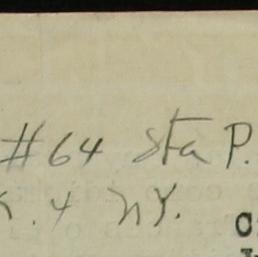 #64 Sta P.
. 4 NY.